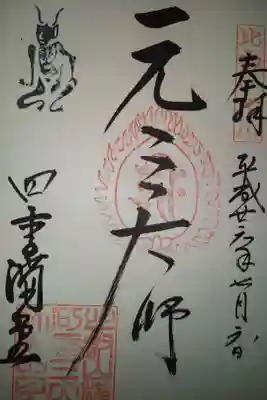 奉拝
平成廿六年七月六日
元三大師
四季講堂